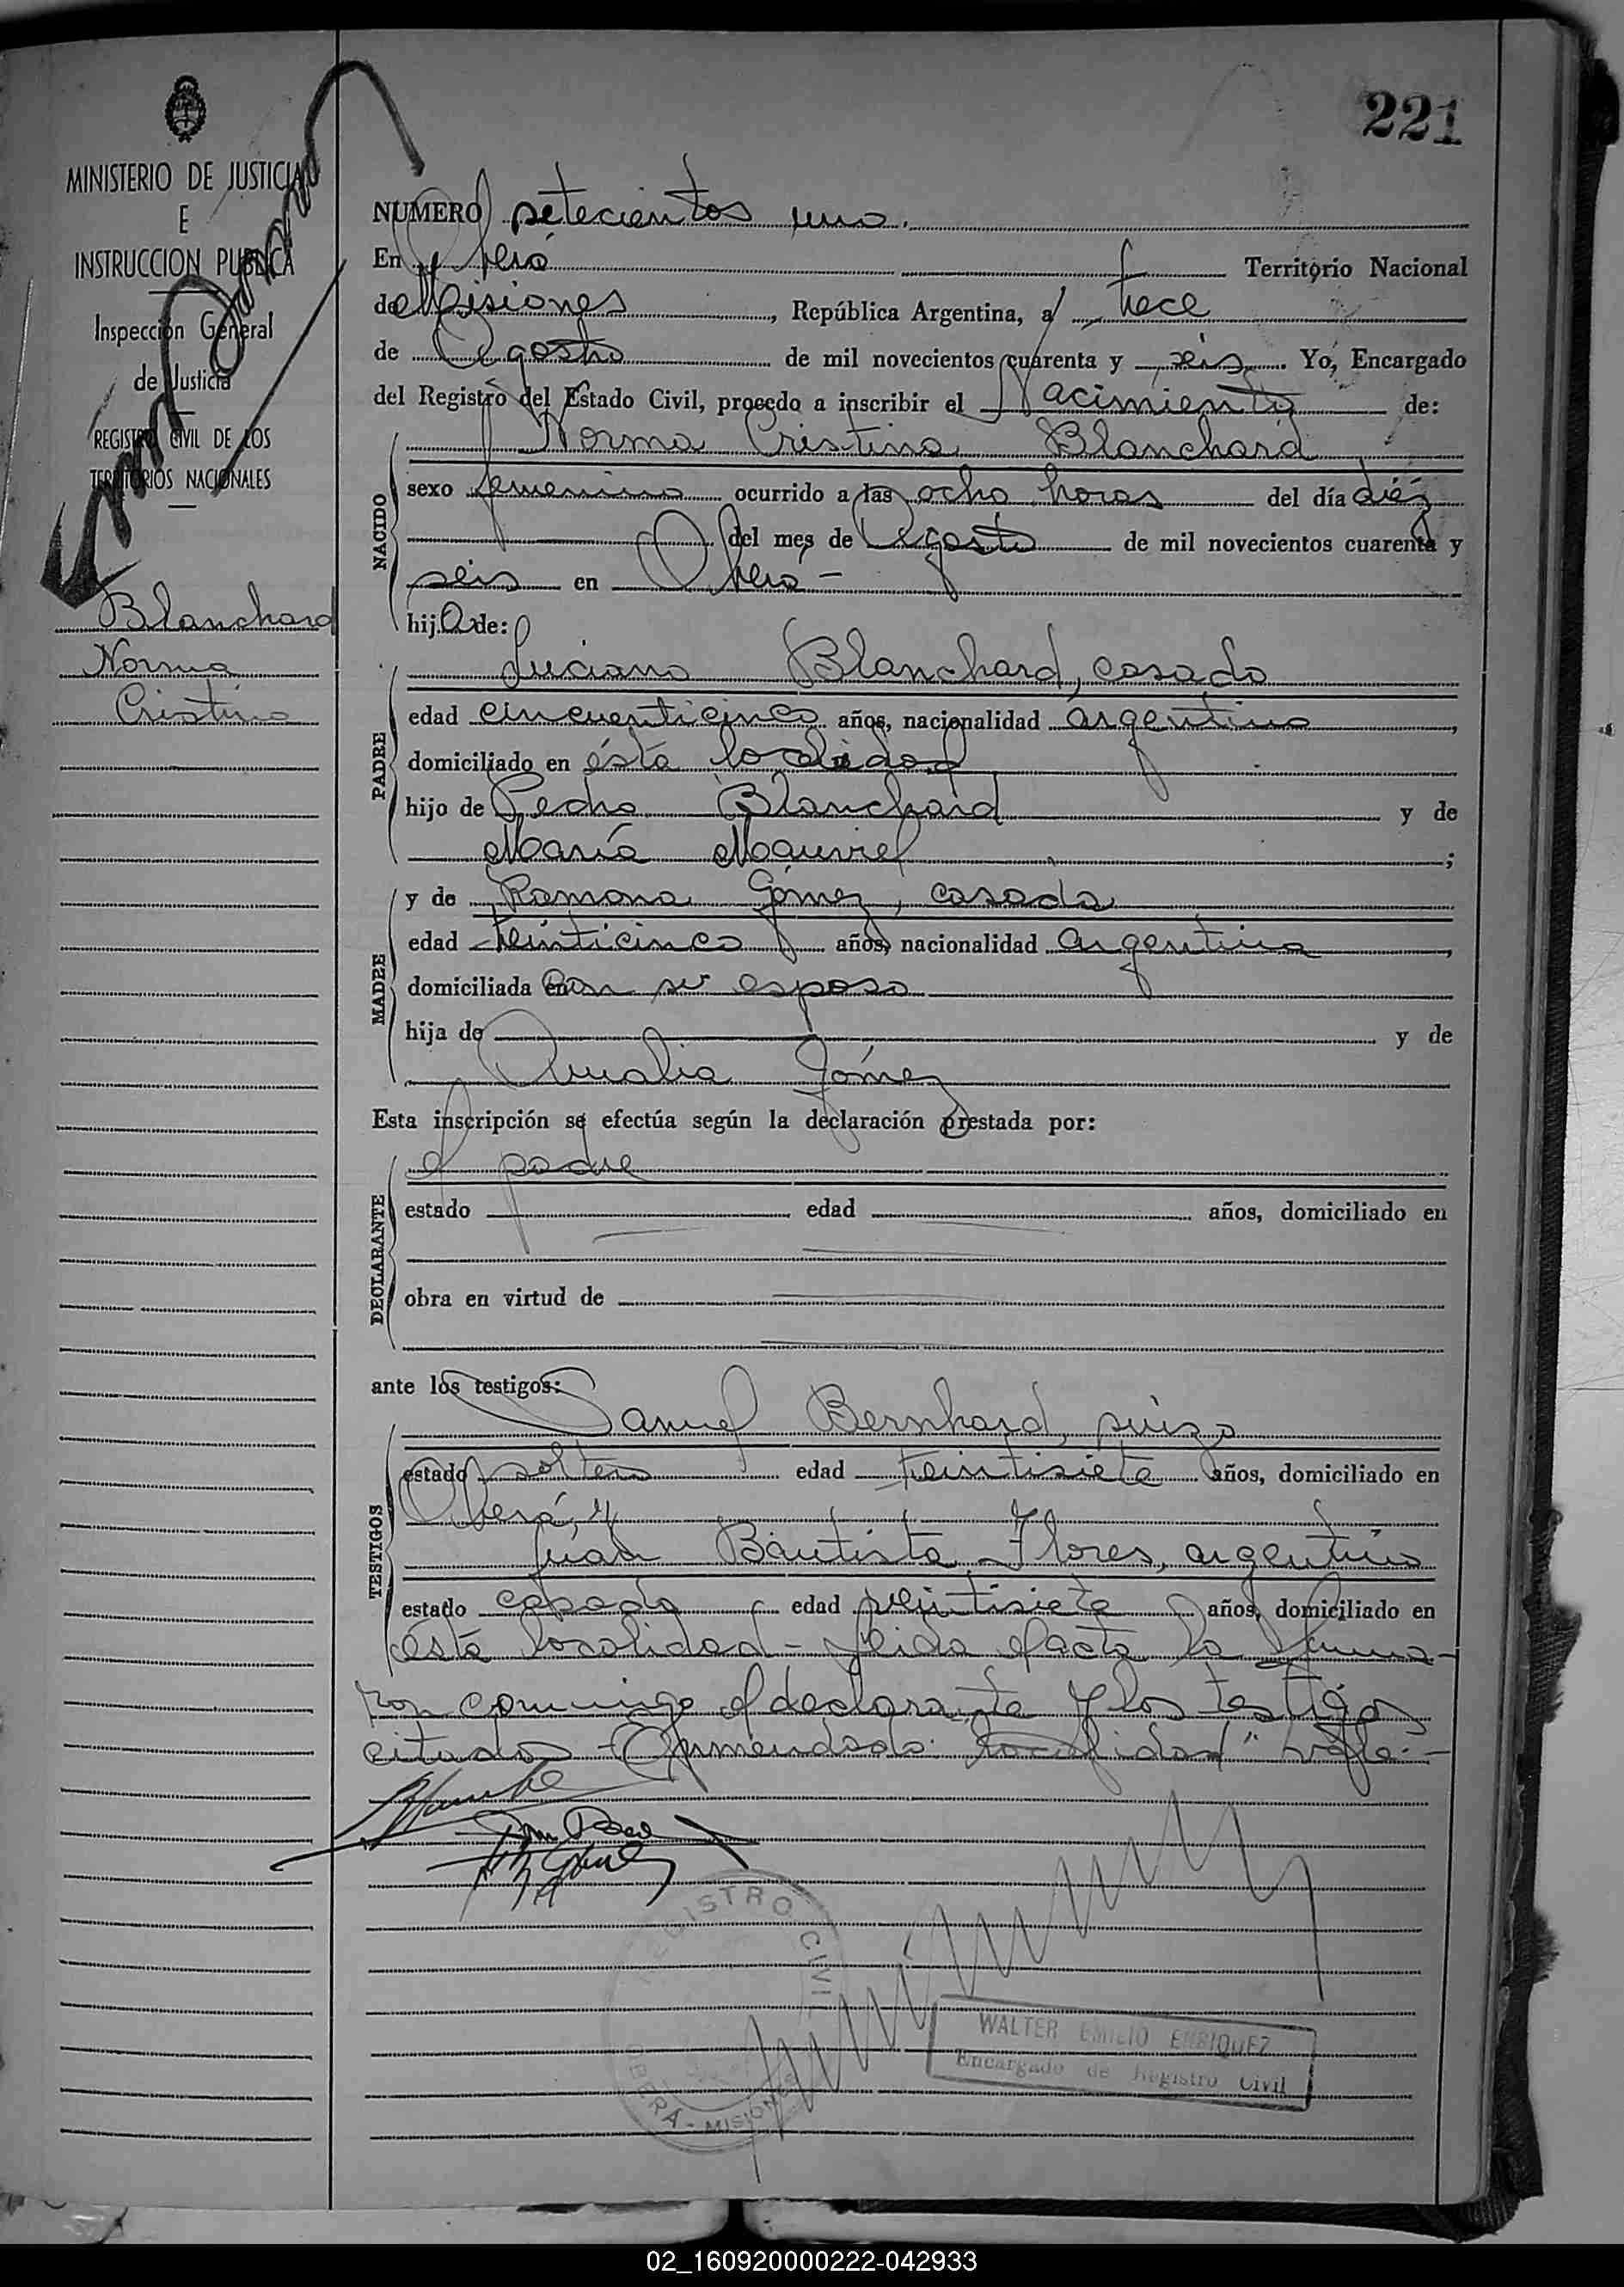 221
MINISTERIO DE JUSTICIA
E
INSTRUCCION PUBLICA
Inspección General
de Justicia
REGISTRO CIVIL DE LOS
TERRITORIOS NACIONALES
Blanchard
Norma
Cristina
NUMERO setecientos uno.
En Oberá Territorio Nacional
de Misiones, República Argentina, a trece
de Agosto de mil novecientos cuarenta y seis. Yo, Encargado
del Registro del Estado Civil, procedo a inscribir el Nacimiento de:
NACIDO
Norma Cristina Blanchard
sexo femenino ocurrido a las ocho horas del día diéz
del mes de Agosto de mil novecientos cuarenta y
seis en Oberá -
hija de:
PADRE
Luciano Blanchard, casado
edad cincuenticinco años, nacionalidad argentino,
domiciliado en ésta localidad
hijo de Pedro Blanchard y de
María Mauriel;
MADRE
y de Ramona Gómez, casada
edad treinticinco años, nacionalidad argentina,
domiciliada en con su esposo
hija de y de
Amalia Gómez
Esta inscripción se efectúa según la declaración prestada por:
DECLARANTE
el padre
estado edad años, domiciliado en
obra en virtud de
ante los testigos:
TESTIGOS
Samuel Bernhard, suizo
estado soltero edad treintisiete años, domiciliado en
Oberá, y
Juan Bautista Flores, argentino
estado casado edad veintisiete años, domiciliado en
ésta localidad - Leida el acta la firma-
ron conmigo el declarante y los testigos
citados - Enmendado: "localidad" vale.-
REGISTRO CIVIL
OBERÁ - MISIONES
WALTER EMILIO ENRIQUEZ
Encargado de Registro Civil
02_160920000222-042933